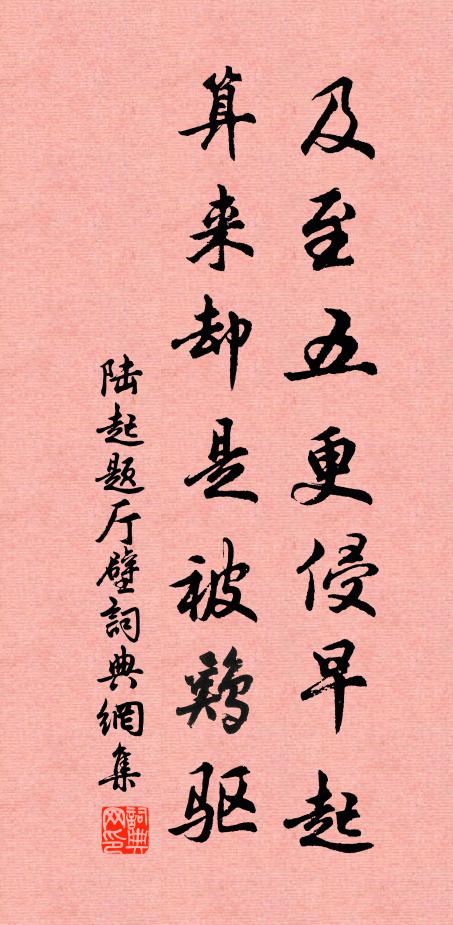 及至五更侵早起
算来却是被鷄驱
陆起题厅壁詞典網集
詞典网印